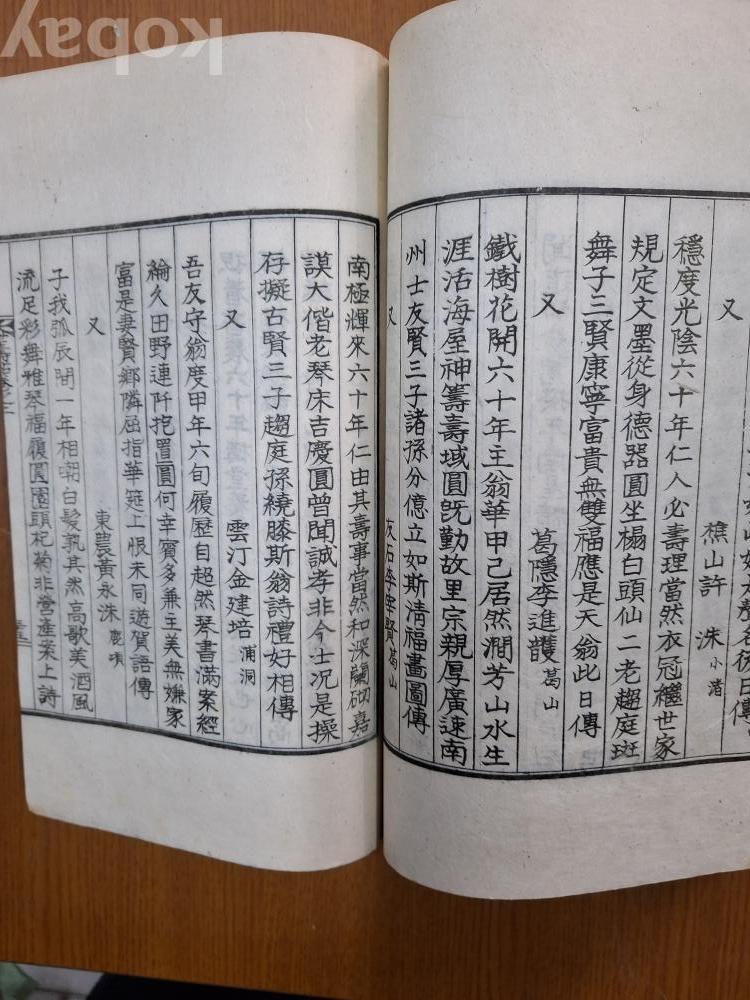 kobay
又 樵山許 洙 小渚
穩度光陰六十年仁人必壽理當然衣冠繼世家
規定文墨從身德器圓坐榻白頭仙二老趨庭斑
舞子三賢康寧富貴無雙福應是天翁此日傳
又 葛隱李進護 葛山
鐵樹花開六十年主翁華甲己居然澗芳山水生
涯活海屋神籌壽域圓旣勤故里宗親厚廣速南
州士友賢三子諸孫分億立如斯清福畵圖傳
又 友石李宰賢 葛山
南極輝來六十年仁由其壽事當然和深闢砌嘉
謨大偕老琴床吉慶圓曾聞誠孝非今士况是操
存擬古賢三子趨庭孫繞膝斯翁詩禮好相傳
又 雲汀金建培 浦洞
吾友守翁度甲年六旬履歷自超然琴書滿案經
綸久田野連阡抱置圓何幸賓多兼主美無嫌家
富是妻賢鄉隣屈指華筵上恨未同遊賀語傳
又 東農黃永洙
子我弧辰間一年相嘲白髮孰其然高歌美酒風
流足彩舞雅琴福履圓園頭杞菊非營產案上詩